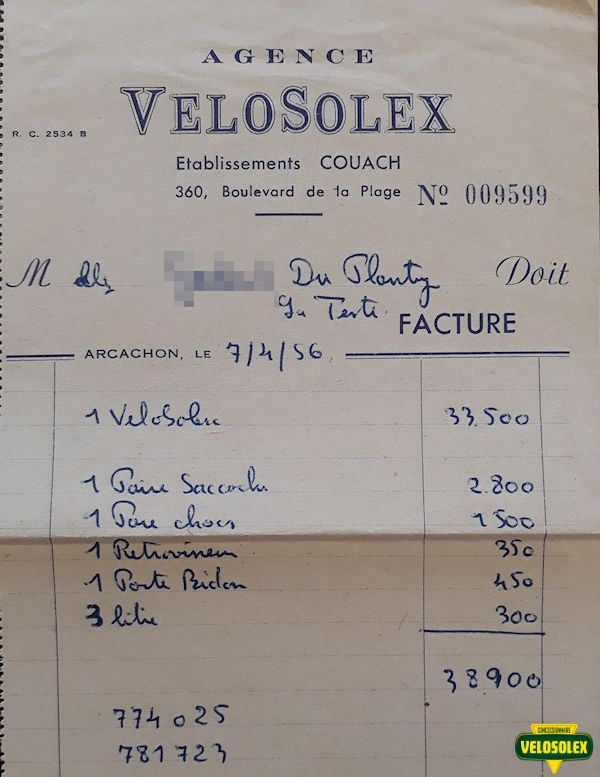 AGENCE
VELOSOLEX
R. C. 2534 B
Etablissements COUACH
360, Boulevard de la Plage Nº 009599
M elle Du Planty Doit
La Teste
FACTURE
ARCACHON, LE 7/4/56
1 VeloSolex 33.500
1 Paire Sacoches 2.800
1 Pare chocs 1 500
1 Retroviseur 350
1 Porte Bidon 450
3 litre 300
38900
774025
781723
CONCESSIONNAIRE
VELOSOLEX